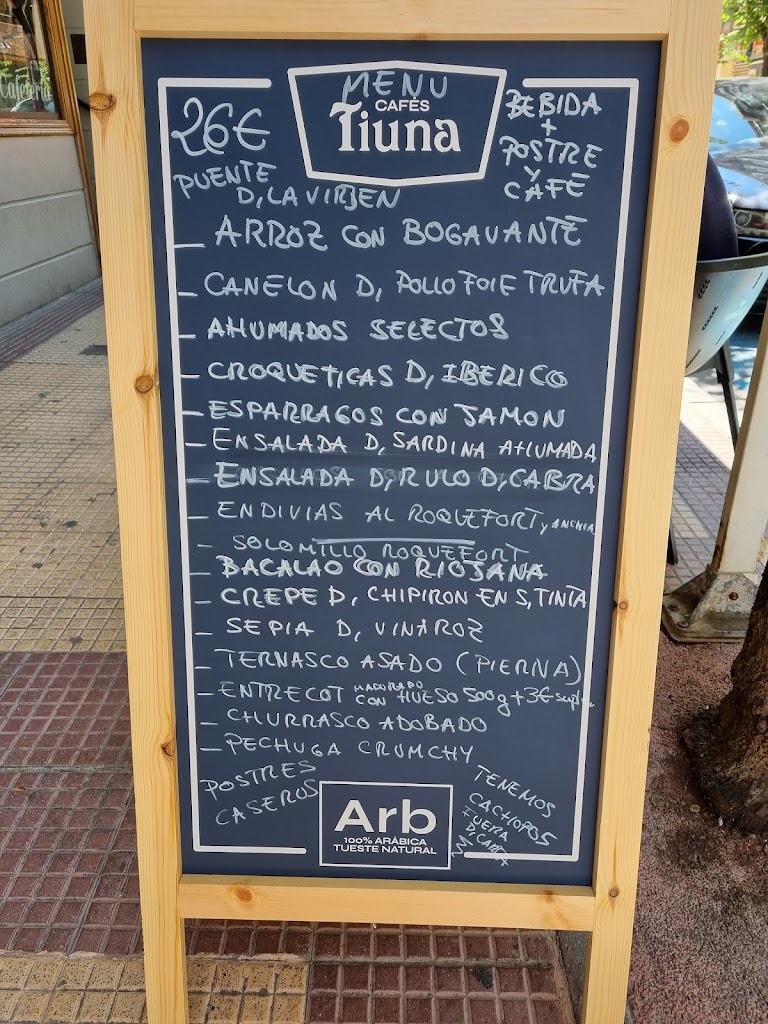 Cafetería
MENU
CAFÉS
Tiuna
26€
PUENTE
D, LA VIRGEN
BEBIDA
+
POSTRE
Y
CAFÉ
— ARROZ CON BOGAVANTE
— CANELON D, POLLO FOIE TRUFA
— AHUMADOS SELECTOS
— CROQUETICAS D, IBERICO
— ESPARRAGOS CON JAMON
— ENSALADA D, SARDINA AHUMADA
— ENSALADA D, RULO D, CABRA
— ENDIVIAS AL ROQUEFORT Y ANCHOA
— SOLOMILLO ROQUEFORT
— BACALAO CON RIOJANA
— CREPE D, CHIPIRON EN S, TINTA
— SEPIA D, VINAROZ
— TERNASCO ASADO (PIERNA)
— ENTRECOT MADURADO CON HUESO 500g + 3€ suple
— CHURRASCO ADOBADO
— PECHUGA CRUNCHY
POSTRES
CASEROS
TENEMOS
CACHOPOS
FUERA
D, CARTA
Arb
100% ARÁBICA
TUESTE NATURAL